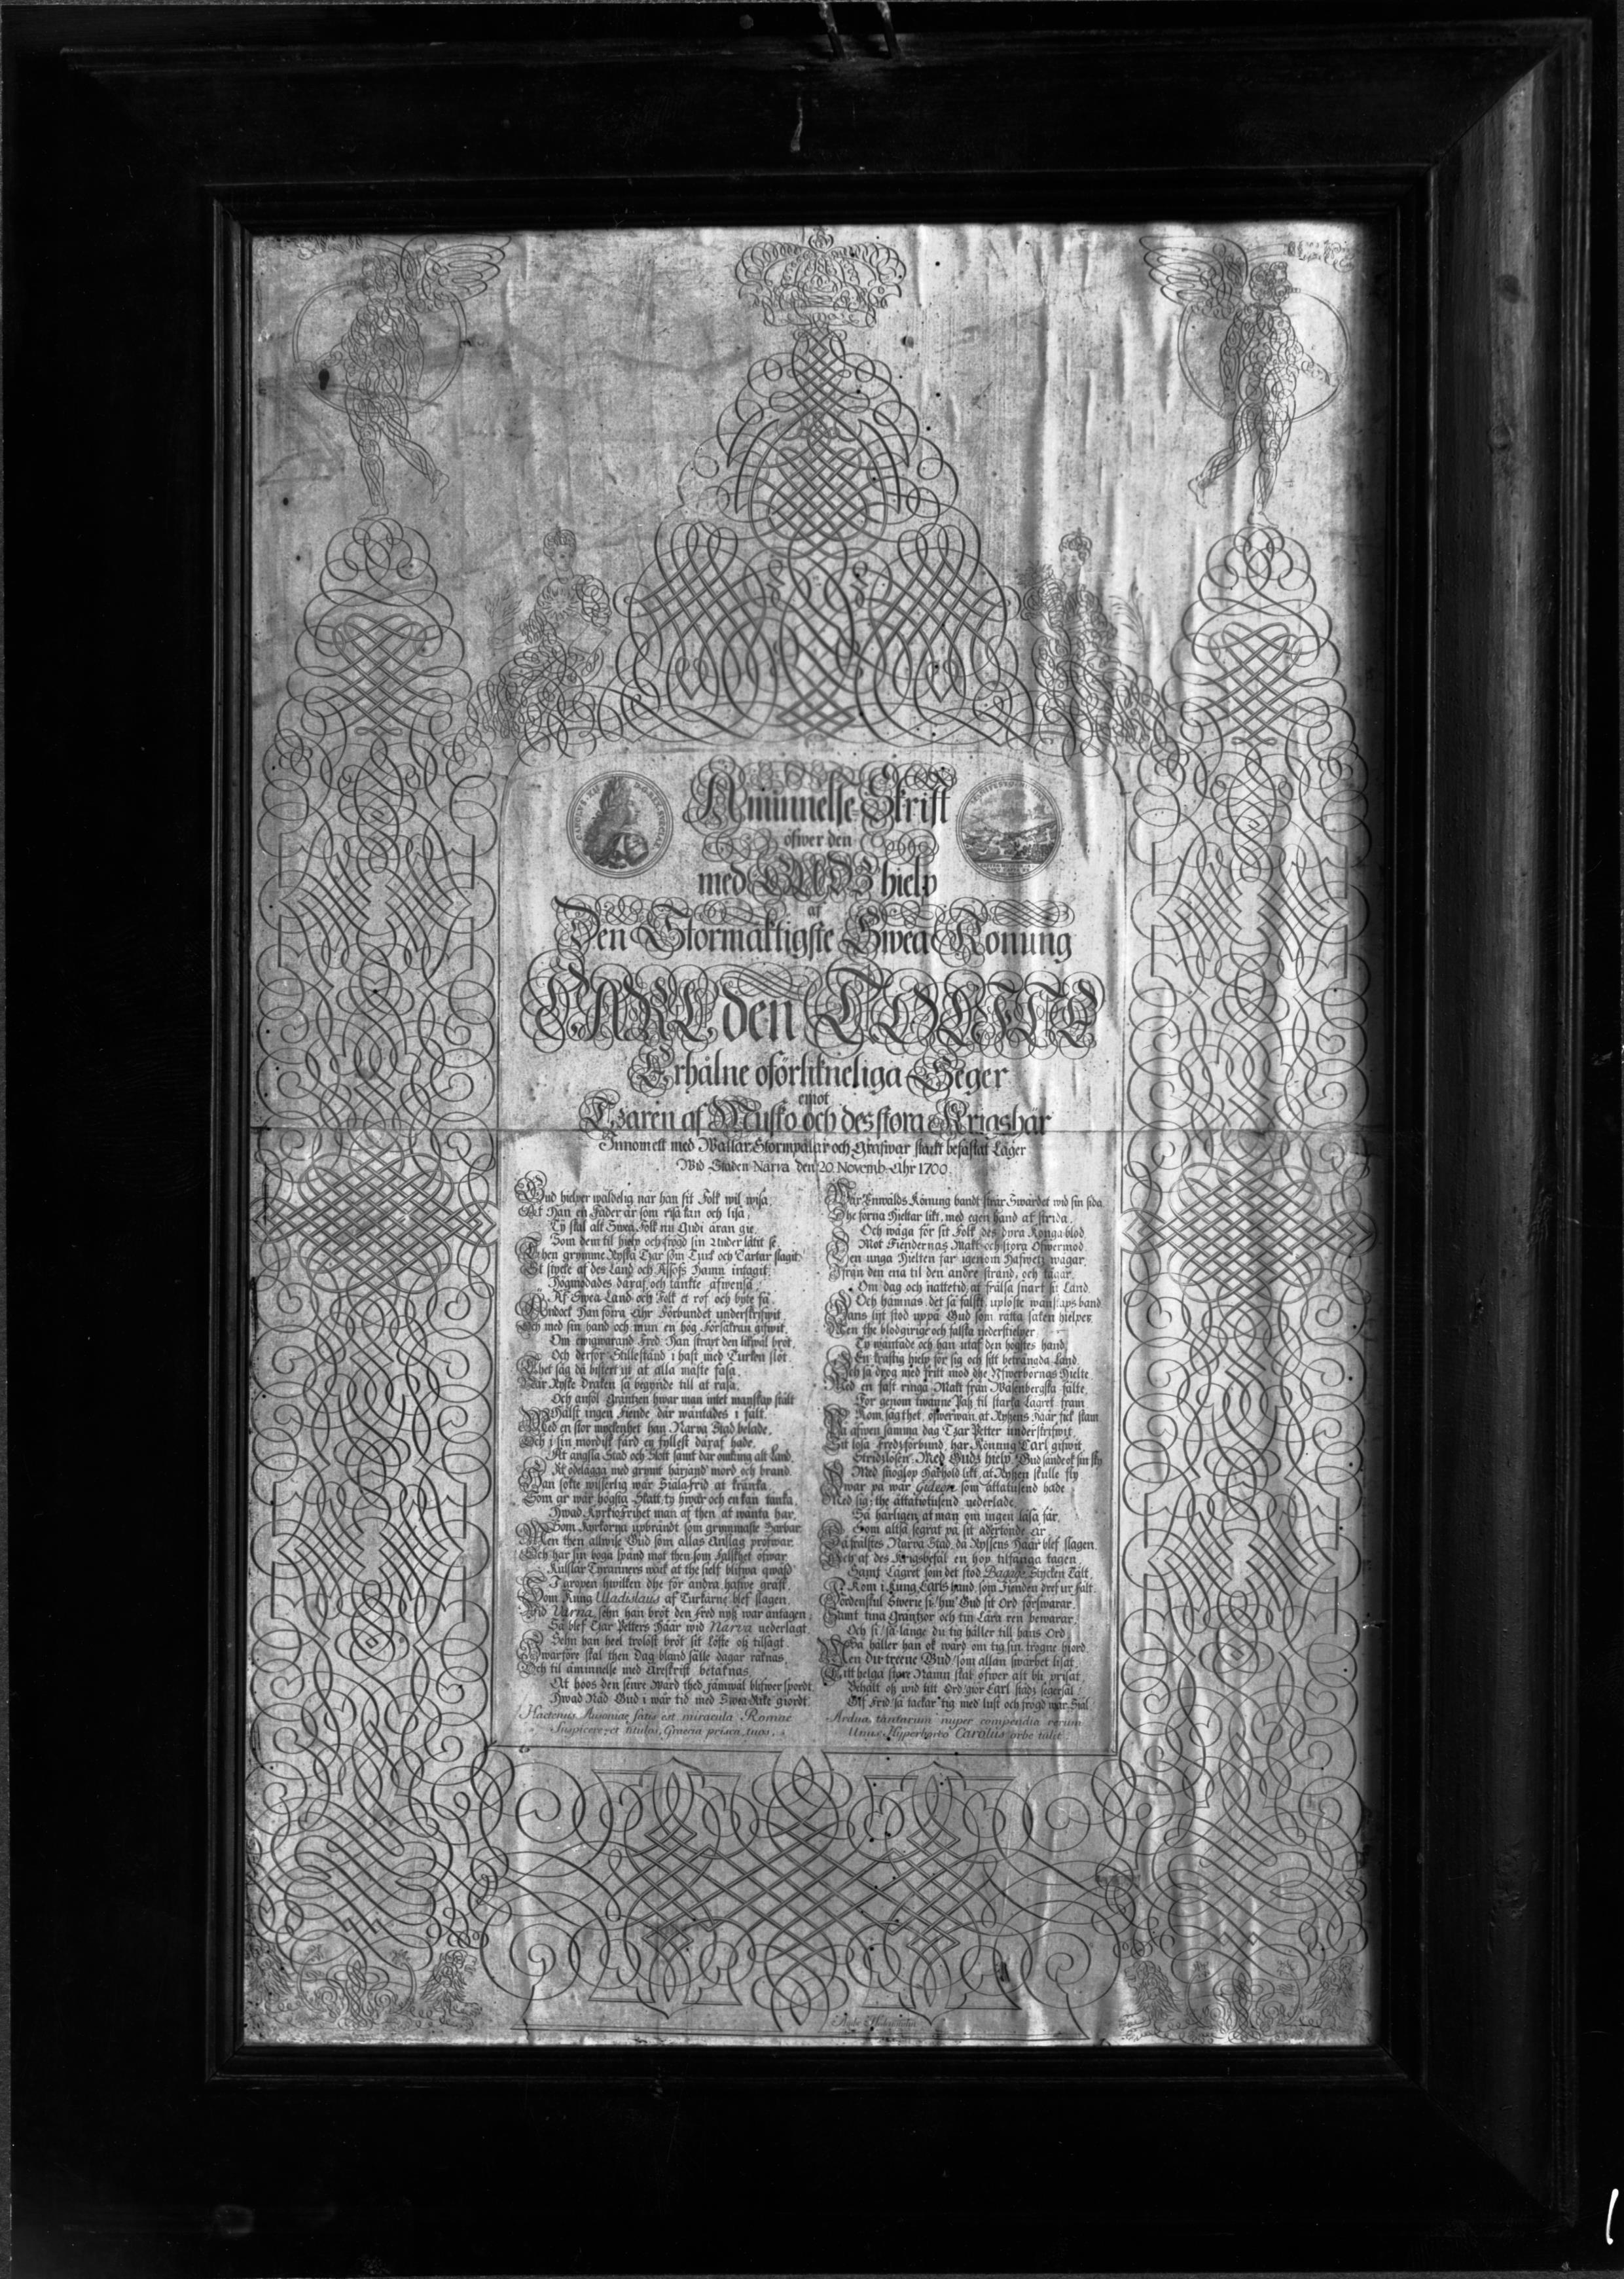 CAROLUS XII D G REX SVECIAE
Åminnelse Skrift
öfwer den
med GUDS hielp
af
Den Stormäktigste Swea Konung
CARL den TOLFTE
Erhålne oförlikneliga Seger
emot
Tzaren af Musko och des stora Krigshär
Innom ett med Wallar, Stormpålar och Grafwar starkt befästat Läger
Wid Staden Narva den 20 Novemb. Ahr 1700.
Gud hielper wäldelig när han sit Folk wil wisa,
At Han en Fader är som risa kan och lisa,
Ty skal alt Swea Folk nu Gudi äran gie,
Som dem til hielp och frögd sin Under låtit se.
Then grymme Ryska Tzar som Turk och Tartar slagit
Et stycke af des Land och Assofs Hamn intagit,
Högmodades däraf, och tänkte äfwenså
Af Swea Land och Folk et rof och byte få.
Ändock Han förra Ahr Förbundet underskrifwit
Och med sin hand och mun en hög Försäkran gifwit,
Om ewigwarand Fred, Han strart den likwäl bröt,
Och derför Stillestånd i hast med Turken slöt.
Thet såg då bistert ut at alla måste fasa,
När Ryske Draken så begynde till at rasa,
Och anföl Gräntzen hwar man intet manskap stält
Hälst ingen Fiende där wäntades i fält.
Med en stor myckenhet han Narva Stad belade,
Och i sin mordisk färd en fyllest däraf hade,
At ängsla Stad och Slott samt där omkring alt Land,
At ödelägga med grymt härjand mord och brand.
Man sökte wisserlig wår Siäla-frid at kränka,
Som är wår högsta Skatt, ty hwar och en kan tänka,
Hwad Kyrkiofrihet man af then at wänta har,
Som Kyrkorna upbrändt som grymmaste Barbar
Men then allwise Gud som allas Anslag pröfwar,
Och har sin boga spänd mot then som Falskhet öfwar,
Kullslår Tyranners makt at the self blifwa qwald
I gropen hwilken dhe för andra hafwe grafft.
Som Kung Uladislaus af Turkarne blef slagen,
Wid Varna, sehn han bröt den Fred nyss war antagen;
Så blef Tzar Petters Häär wid Narva nederlagt,
Sehn han heel trolöst bröt sit Löfte oss tilsagt.
Hwarföre skal then Dag bland sälle dagar räknas,
Och til åminnelse med Äreskrift betäknas,
At hoos den senre Wärd thed jämwäl blifwer spordt
Hwad Nåd Gud i wår tid med Swea Rike giordt.
Hactenus Ausoniae satis est miracula Romae
Suspicere, et titulos, Graecia prisca, tuos,
Wår Enwålds Konung bandt strax Swärdet wid sin sida
Dhe forna Hieltar likt, med egen hand at strida,
Och wåga för sit Folk des dyra Konga-blod
Mot Fiendernas Makt och stora Öfwermod.
Den unga Hielten far igenom Hafwetz wågar
Ifrån den ena til den andre strand, och tågar
Om dag och nattetid, at frälsa snart sit Land,
Och hämnas det så falskt uplöste wänskaps band
Hans lijt stod uppå Gud som rätta saken hielper
Men the blodgirige och falska nederstielper,
Ty wäntade och han utaf den högstes hand,
En kraftig hielp för sig och sitt beträngda Land.
Och så drog med fritt mod dhe Nfwerbornas Hielte
Med en fast ringa Makt från Wäsenbergska fälte,
För genom twänne Pass til starka Lägret fram
Kom, såg thet, öfwerwan, at Ryssens Häär fick skam
På äfwen samma dag Tzar Petter underskrifwit,
Sit lösa Fredzförbund, har Konung Carl gifwit
Stridzlosen, Med Guds hielp, Gud sände ok sin sky
Med snöglop Häkbold likt, at Ryssen skulle fly
Hwar på wår Gideon, som åttatusend hade
Med sig, the åttatiotusend nederlade,
Så härligen, at man om ingen läsa får,
Som altså segrat på sit adertonde år
Så frälstes Narva Stad, då Ryssens Häär blef slagen.
Och af des Krigsbefäl en hop tilfånga tagen
Samt Lägret som det stod Bagage, Stycken Tält,
Kom i Kung Carls hand, som Fienden dref ur fält.
Fördenskul Swerie si, hur Gud sit Ord förswarar,
Samt tina Gräntzor och tin Lära ren bewarar,
Och si, så länge du tig håller till hans Ord,
Så håller han ok ward om tig sin trogne hiord
Men du treene Gud, som allan swårhet lisat,
Titt helga store Namn skal öfwer alt bli prisat,
Behålt oss wid titt Ord, giör Carl städz segersäl,
Gif Frid, så tackar tig med lust och frögd wår Siäl.
Ardua tantarum nuper compendia rerum
Unus Hyperboreo Carolus orbe tulit.